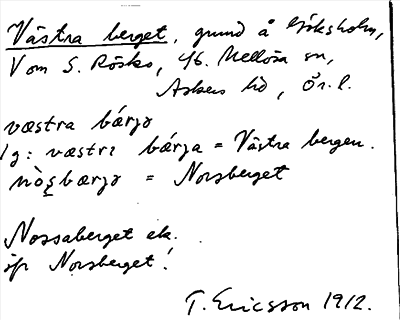 Västra berget, grund å Göksholm,
V om S. Rösko, St. Mellösa sn,
Askers hd, Ör. l.
væstra bárjə
lg: væstrı bárja = Västra bergen.
bærjə = Norsberget
Nossaberget ek.
Norsberget!
T. Ericsson 1912.